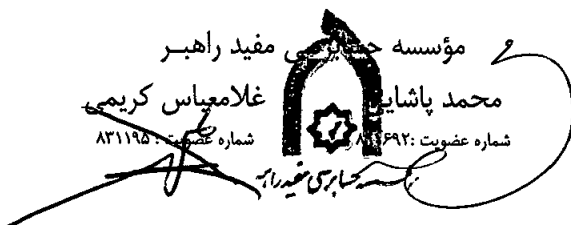 مؤسسه حسابرسی مفید راهبر
محمد پاشایی غلامعباس کریمی
شماره عضویت: شماره عضویت: ۸۳۱۱۹۵
مؤسسه حسابرسی مفید راهبر